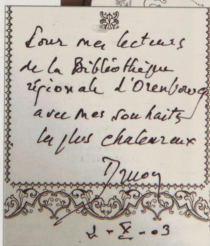 Pour mes lecteurs
de la Bibliothèque
régionale d'Orenbourg
avec mes souhaits
les plus chaleureux
2-X-03